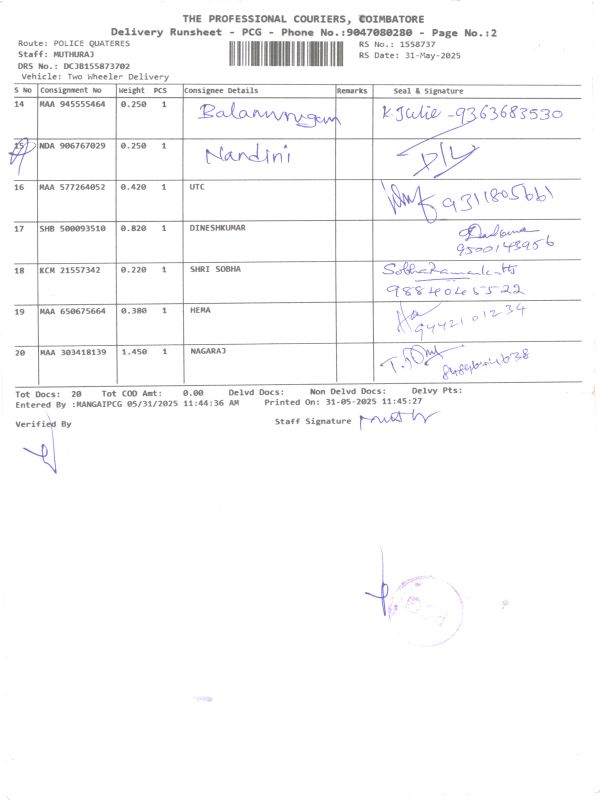 THE PROFESSIONAL COURIERS, COIMBATORE
Delivery Runsheet - PCG - Phone No.:9047080280 - Page No.:2
Route: POLICE QUATERES
RS No.: 1558737
Staff: MUTHURAJ
RS Date: 31-May-2025
DRS No.: DCJB155873702
Vehicle: Two Wheeler Delivery
S No Consignment No Weight PCS Consignee Details Remarks Seal & Signature
14 MAA 945555464 0.250 1 Balamurugan K Julie -9363683530
15 NDA 906767029 0.250 1 Nandini D/L
16 MAA 577264052 0.420 1 UTC 9311805661
17 SHB 500093510 0.820 1 DINESHKUMAR 9500143956
18 KCM 21557342 0.220 1 SHRI SOBHA 9884045522
19 MAA 650675664 0.380 1 HEMA 9442101234
20 MAA 303418139 1.450 1 NAGARAJ
Tot Docs: 20 Tot COD Amt: 0.00 Delvd Docs: Non Delvd Docs: Delvy Pts:
Entered By :MANGAIPCG 05/31/2025 11:44:36 AM Printed On: 31-05-2025 11:45:27
Verified By
Staff Signature